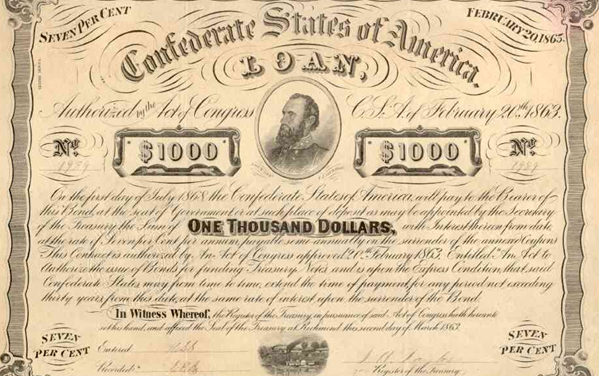 SEVEN PER CENT
FEBRUARY 20, 1863.
Confederate States of America
LOAN,
Authorized by the Act of Congress C.S.A. of February 20th 1863.
No. No.
1989 1989
$1000 $1000
On the first day of July 1868 the Confederate States of America, will pay to the Bearer of
this Bond, at the seat of Government, or at such place of deposit as may be appointed by the Secretary
of the Treasury, the Sum of ONE THOUSAND DOLLARS, with Interest thereon from date
at the rate of Seven per Cent per annum, payable semi annually on the surrender of the annexed Coupons
This Contract is authorized by An Act of Congress approved 20th February 1863, Entitled "An Act to
Authorize the issue of Bonds for funding Treasury Notes" and is upon the Express Condition, that said
Confederate States may from time to time, extend the time of payment for any period not exceeding
thirty years from this date, at the same rate of interest upon the surrender of the Bond.
In Witness Whereof, the Register of the Treasury, in pursuance of said Act of Congress hath hereunto
set his hand, and affixed the Seal of the Treasury, at Richmond this second day of March 1863.
SEVEN PER CENT
SEVEN PER CENT
Entered
Recorded
Register of the Treasury